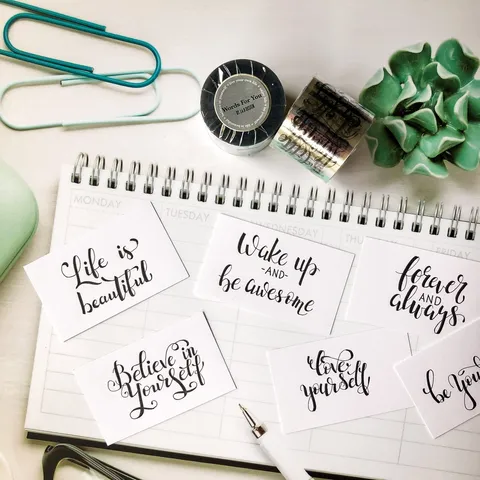 Words For You
MONDAY
TUESDAY
WEDNESDAY
FRIDAY
Life is
beautiful
Wake up
-AND-
be awesome
forever
AND
always
Believe in
Yourself
love
yourself
be You